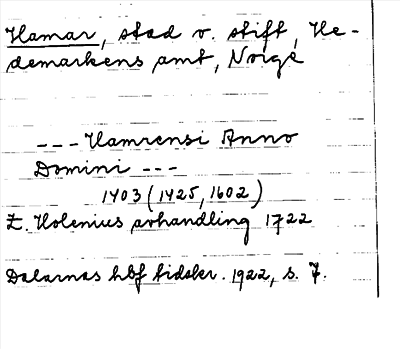 Hamar, stad o. stift, He-
demarkens amt, Norge
--- Hamrensi Anno
Domini ---
1403 (1425, 1602)
E. Holenius avhandling 1722
Dalarnas hbf tidskr. 1922, s. 7.